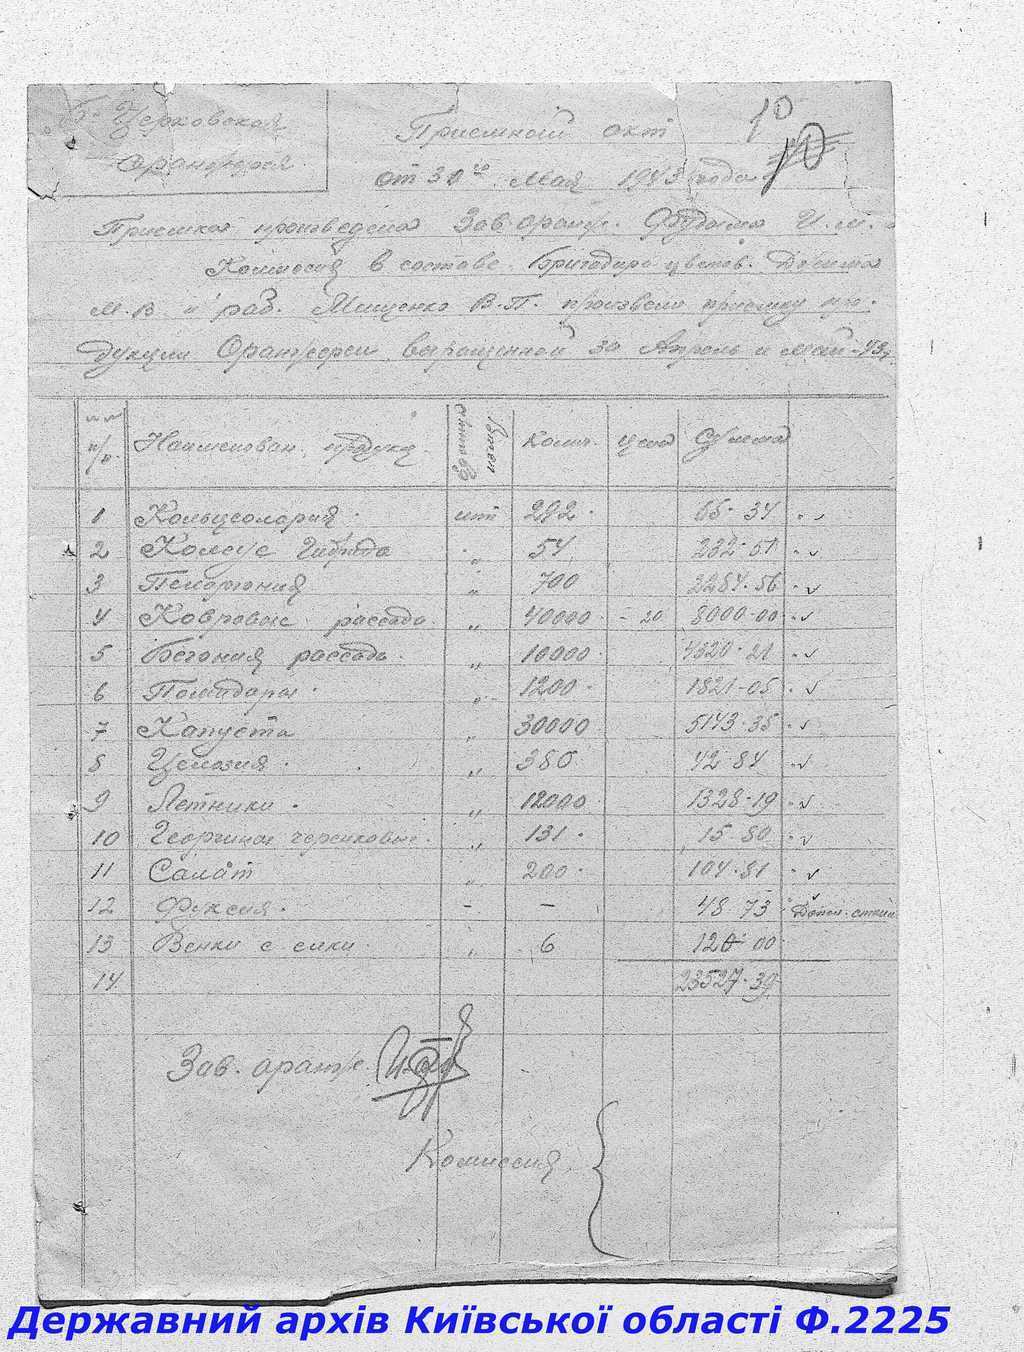 Б-Церковская
Оранжерея
Приемный акт
10
от 30го Мая 1943 года
Приемка произведена Зав. оранж. И.М.
Комиссия в составе Бригадира цветов.
М.В и раб. Мищенко В.П. произвели приемку про-
дукции Оранжереи выращенной за Апрель и Май-43г
п/п Наименован. продукц. Колич. цена Сумма
1 Кальцеолярия шт 292 65-34
2 Колеус Гибрида " 54 232-51
3 Пеларгония " 700 2284-56
4 Ковровые рассада " 40000 -20 8000-00
5 Бегония рассада " 10000 4320-21
6 Помидоры " 1200 1821-05
7 Капуста " 30000 5143-35
8 Целозия " 380 42-84
9 Летники " 12000 1328-19
10 Георгины черенковые " 131 15-80
11 Салат " 200 104-81
12 Фуксия - - 48-73
13 Венки с елки " 6 120-00
14 23527-39
Зав. оранж.
Комиссия
Державний архів Київської області Ф.2225